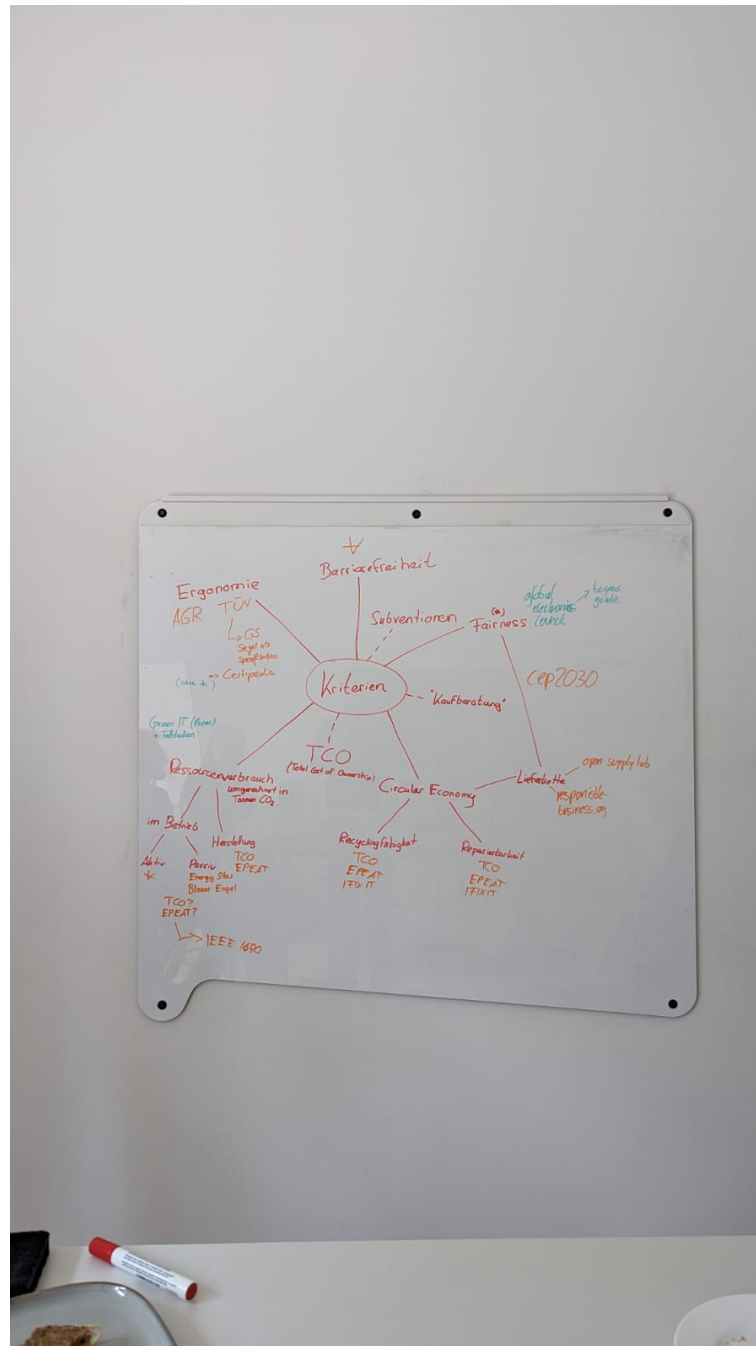 Barrierefreiheit
Ergonomie
AGR
TÜV
GS
Siegel als
Spezifikation
Certipedia
Subventionen
(*)
Fairness
global
electronics
council
buyers
guide
Kriterien
"Kaufberatung"
cep2030
Green IT (Paper)
TCO
(Total Cost of Ownership)
Ressourcenverbrauch
umgerechnet in
Tonnen CO₂
Circular Economy
Lieferkette
open supply hub
responsible
business.org
im Betrieb
Herstellung
TCO
EPEAT
Aktiv
Passiv
Energy Star
Blauer Engel
TCO?
EPEAT?
IEEE 1680
Recyclingfähigkeit
TCO
EPEAT
IFIXIT
Reparierbarkeit
TCO
EPEAT
IFIXIT